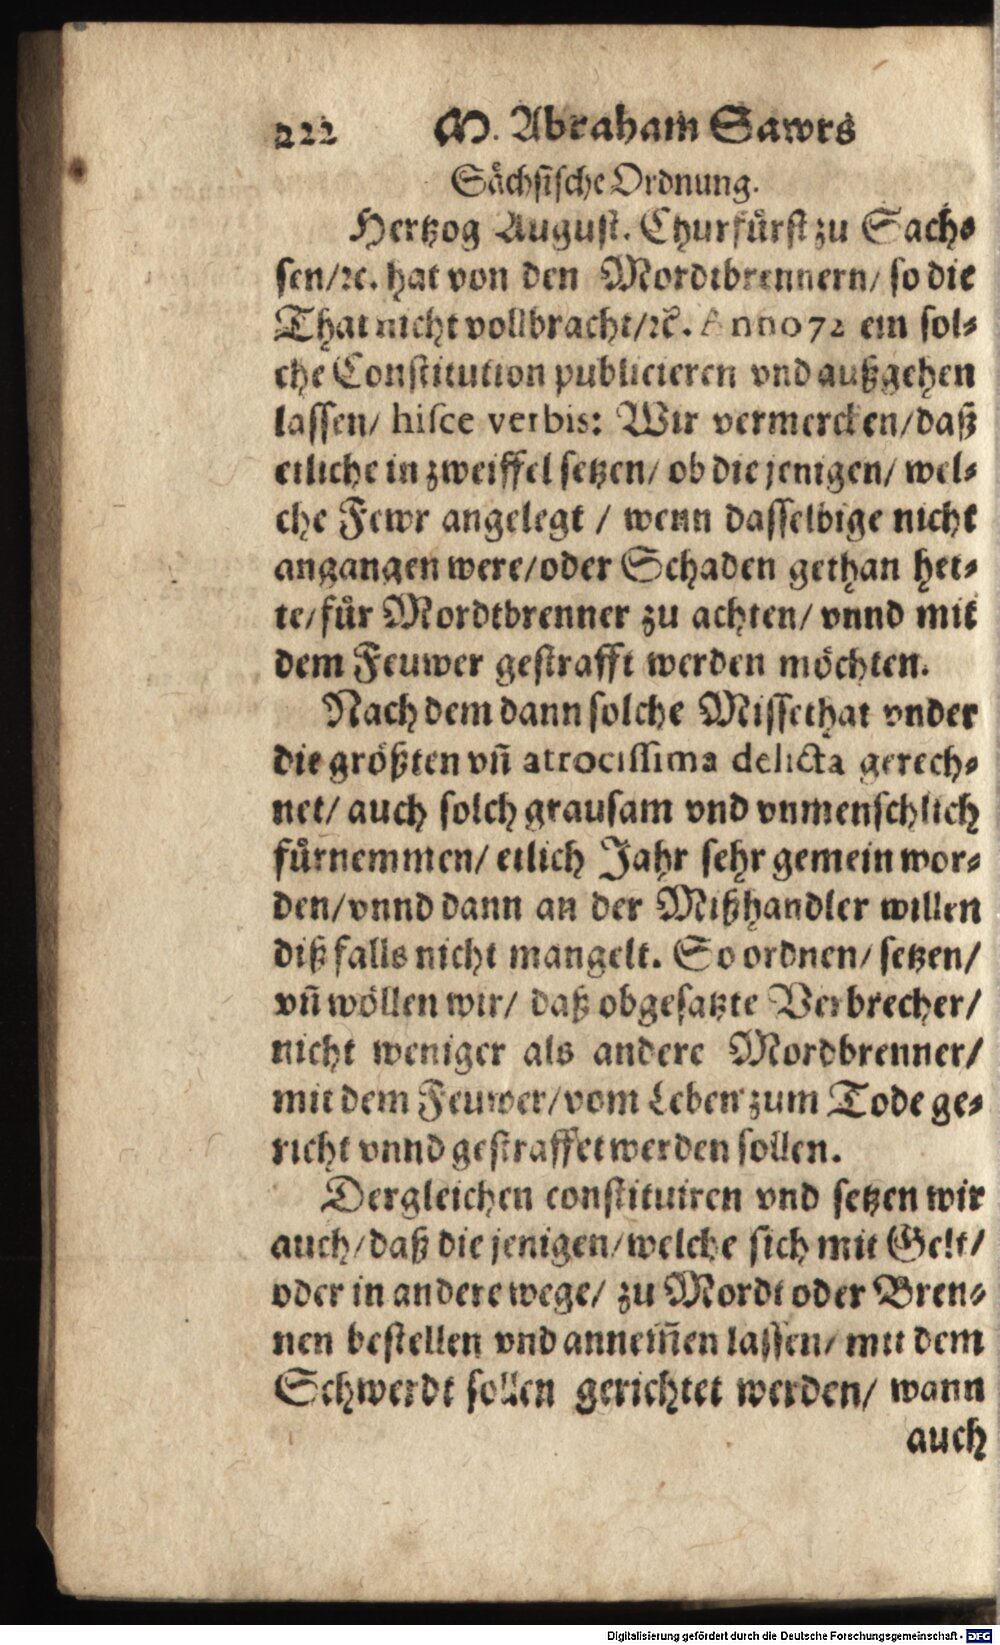 222 M. Abraham Sawrs
Sächsische Ordnung.
Hertzog August. Churfürst zu Sach⸗
sen/ꝛc. hat von den Mordtbrennern/ so die
That nicht vollbracht/ꝛc. Anno 72 ein sol⸗
che Constitution publicieren vnd außgehen
lassen/ hisce verbis: Wir vermercken/daß
etliche in zweiffel setzen/ ob die jenigen/ wel⸗
che Fewr angelegt / wenn dasselbige nicht
angangen were/oder Schaden gethan het⸗
te/für Mordtbrenner zu achten/ vnnd mit
dem Feuwer gestrafft werden möchten.
Nach dem dann solche Missethat vnder
die größten vñ atrocissima delicta gerech⸗
net/ auch solch grausam vnd vnmenschlich
fürnemmen/ etlich Jahr sehr gemein wor⸗
den/vnnd dann an der Mißhandler willen
diß falls nicht mangelt. So ordnen/ setzen/
vñ wöllen wir/ daß obgesatzte Verbrecher/
nicht weniger als andere Mordbrenner/
mit dem Feuwer/vom Leben zum Tode ge⸗
richt vnnd gestraffet werden sollen.
Dergleichen constituiren vnd setzen wir
auch/daß die jenigen/welche sich mit Gelt/
oder in andere wege/ zu Mordt oder Bren⸗
nen bestellen vnd annem̃en lassen/ mit dem
Schwerdt sollen gerichtet werden/ wann
auch
Digitalisierung gefördert durch die Deutsche Forschungsgemeinschaft - DFG